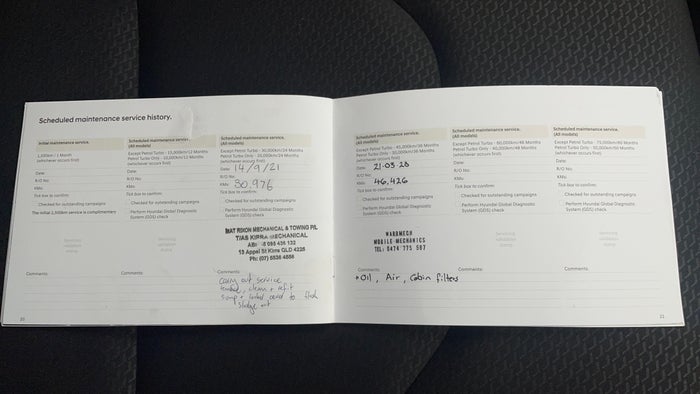 Scheduled maintenance service history.
Initial maintenance service.
1,500km / 1 Month
(whichever occurs first)
Date:
R/O No:
KMs:
Tick box to confirm:
Checked for outstanding campaigns
The initial 1,500km service is complimentary
Servicing
validation
stamp
Comments:
20
Scheduled maintenance service.
(All models)
Except Petrol Turbo - 15,000km/12 Months
Petrol Turbo Only - 10,000km/12 Months
(whichever occurs first)
Date:
R/O No:
KMs:
Tick box to confirm:
Checked for outstanding campaigns
Perform Hyundai Global Diagnostic
System (GDS) check
Servicing
validation
stamp
Comments:
Scheduled maintenance service.
(All models)
Except Petrol Turbo - 30,000km/24 Months
Petrol Turbo Only - 20,000km/24 Months
(whichever occurs first)
Date: 14/9/21
R/O No:
KMs: 30,976
Tick box to confirm:
Checked for outstanding campaigns
Perform Hyundai Global Diagnostic
System (GDS) check
MECHANICAL & TOWING P/L
MECHANICAL
13 Appel St QLD 4225
Ph: (07) 5536 4888
Comments:
Carry out service
clean + refit
sump +
sludge out
Scheduled maintenance service.
(All models)
Except Petrol Turbo - 45,000km/36 Months
Petrol Turbo Only - 30,000km/36 Months
(whichever occurs first)
Date: 21-03-23
R/O No:
KMs: 46,426
Tick box to confirm:
Checked for outstanding campaigns
Perform Hyundai Global Diagnostic
System (GDS) check
WARRMECH
MOBILE MECHANICS
TEL: 0474 775 587
Comments:
* Oil, Air, Cabin filters
Scheduled maintenance service.
(All models)
Except Petrol Turbo - 60,000km/48 Months
Petrol Turbo Only - 40,000km/48 Months
(whichever occurs first)
Date:
R/O No:
KMs:
Tick box to confirm:
Checked for outstanding campaigns
Perform Hyundai Global Diagnostic
System (GDS) check
Servicing
validation
stamp
Comments:
Scheduled maintenance service.
(All models)
Except Petrol Turbo - 75,000km/60 Months
Petrol Turbo Only - 50,000km/60 Months
(whichever occurs first)
Date:
R/O No:
KMs:
Tick box to confirm:
Checked for outstanding campaigns
Perform Hyundai Global Diagnostic
System (GDS) check
Servicing
validation
stamp
Comments:
21